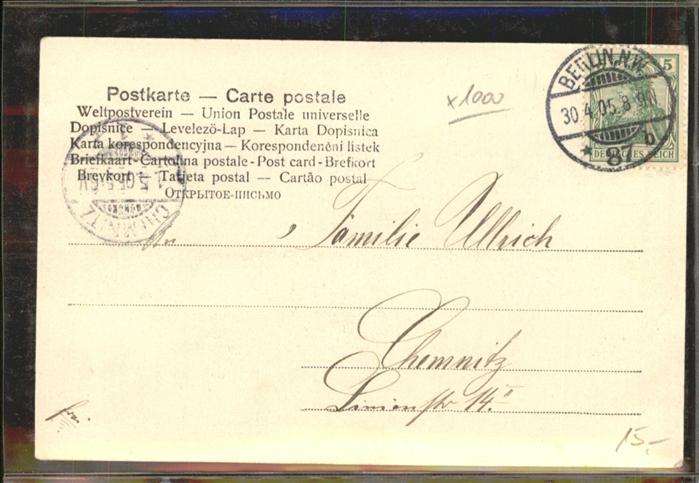 Postkarte — Carte postale
Weltpostverein — Union Postale universelle
Dopisnice — Levelező-Lap — Karta Dopisnica
Karta korespondencyjna — Korespondenční listek
Briefkaart - Cartolina postale - Post card - Brefkort
Brevkort — Tarjeta postal — Cartão postal
ОТКРЫТОЕ-ПИСЬМО
x1000
BERLIN, N.W.
30.4.05.8-9N
* 87 b
5
DEUTSCHES REICH
CHEMNITZ
Familie Ullrich
Chemnitz
Linienstr 14 II
frei
15,-